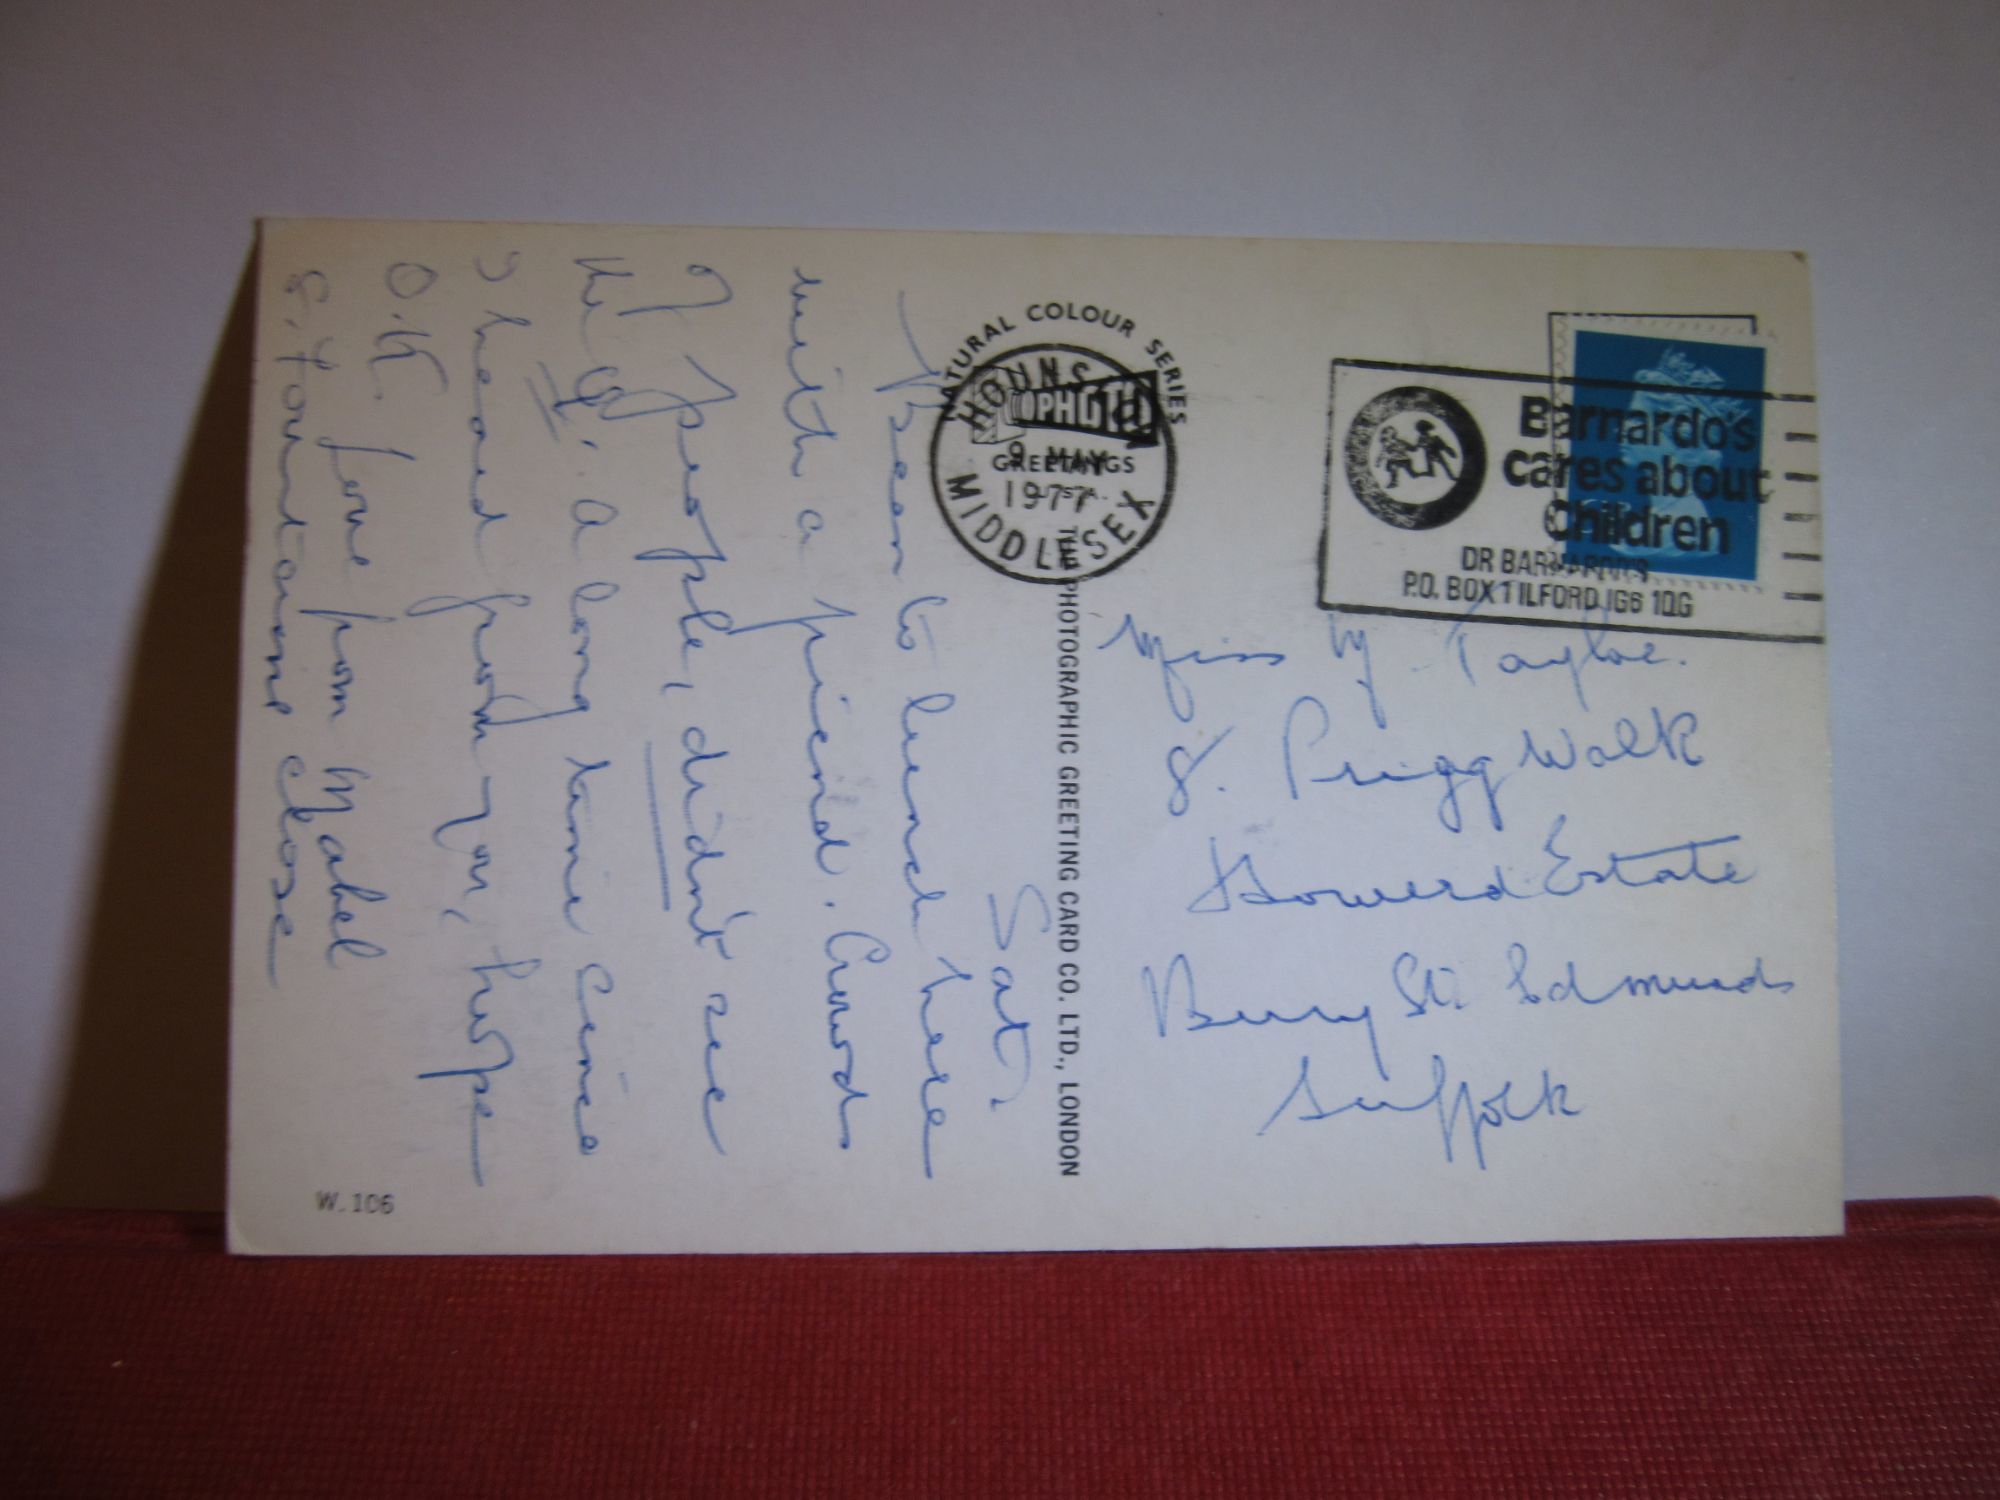 Sat.
Been to lunch here
with a friend. Crowds
of people, didn't see
the Q. A long time cince
I heard from you, hope
O.K. Love from Mabel
8. Fountains Close
NATURAL COLOUR SERIES
PHOTO
GREETINGS
THE PHOTOGRAPHIC GREETING CARD CO. LTD., LONDON
9 MAY
1977
MIDDLESEX
Barnardo's
cares about
Children
DR BARNARDO'S
P.O. BOX 1 ILFORD IG6 1QG
Miss M. Taylor.
8. Prigg Walk
Howard Estate
Bury St. Edmunds
Suffolk
W. 106